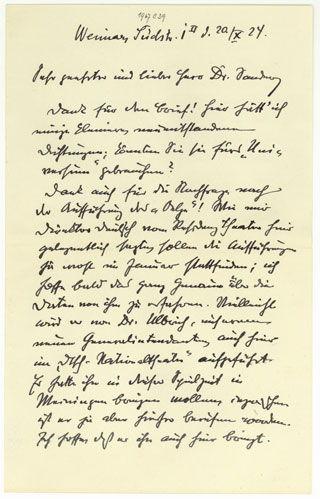 Weimar, Südstr. 1 II d. 20/X 24.
Sehr geehrter und lieber Herr Dr.
Dank für den Brief! Hier hätt' ich
einige
Dichtungen; können Sie sie fürs „Uni-
versum" gebrauchen?
Dank auch für die Nachfrage nach
der Aufführung des Wie mir
Direktor vom Residenz Theater hier
gelegentlich sagte, sollen die Aufführungen
für wohl im Januar stattfinden; ich
hoffe bald das ganz Genaue über die
Daten von ihm zu erfahren. Vielleicht
wird er von Dr. Ulbrich, unserem
neuen Generalintendanten auch hier
im „Dtsch. Nationaltheater" aufgeführt.
Er hatte ihn in dieser Spielzeit in
Meiningen bringen wollen,
ist er ja aber hierher berufen worden.
Ich hoffe, daß er ihn auch hier bringt.